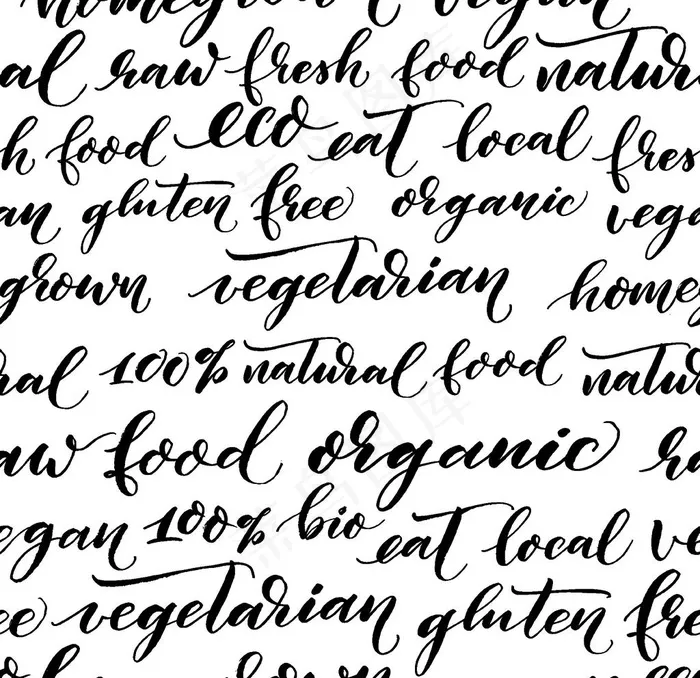 homegrown vegan
al raw fresh food natur
h food eco eat local fres
an gluten free organic vega
grown vegetarian home
ral 100% natural food natu
aw food organic ra
egan 100% bio eat local ve
ee vegetarian gluten fre